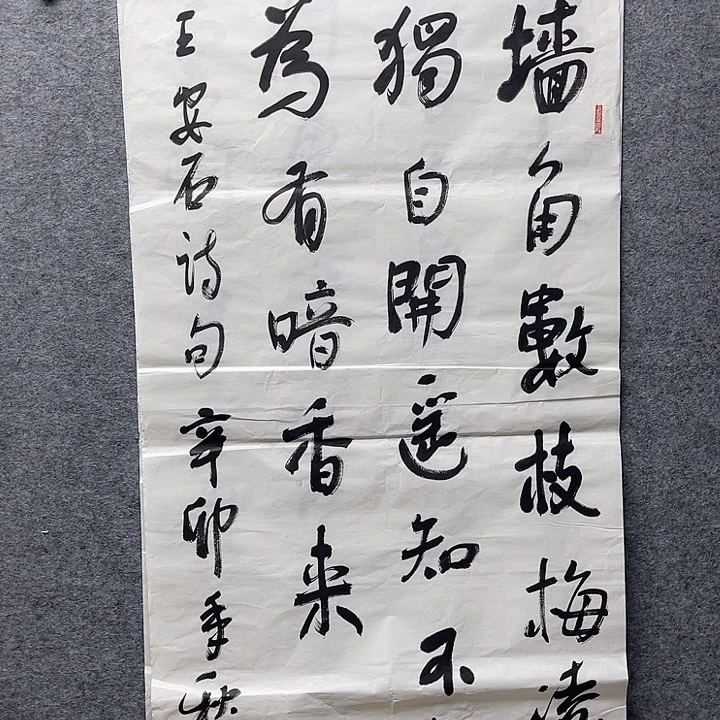 墙角數枝梅凌
獨自開遥知不
為有暗香来
王安石诗句辛卯年秋